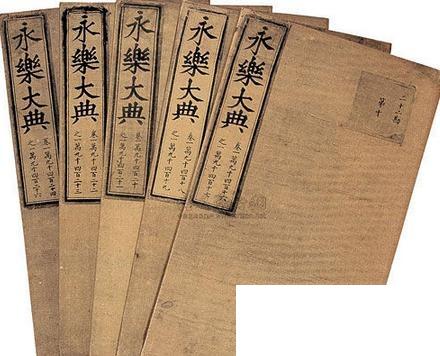 永樂大典
卷一萬九千四百十六
之一萬九千四百十七
二十二勘
第十
永樂大典
卷一萬九千四百十八
之一萬九千四百十九
永樂大典
卷一萬九千四百二十
之一萬九千四百二十一
永樂大典
卷一萬九千四百二十二
之一萬九千四百二十三
永樂大典
卷一萬九千四百二十四
之一萬九千四百二十六